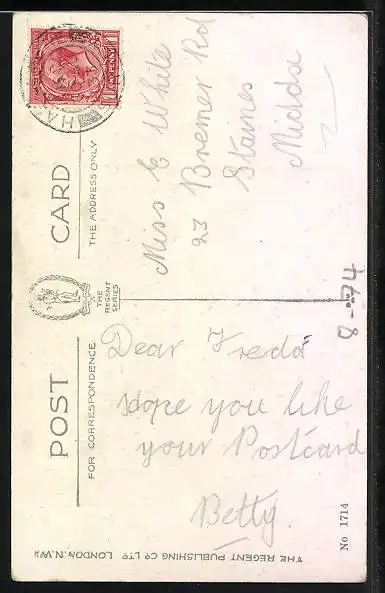 POST CARD
FOR CORRESPONDENCE
THE ADDRESS ONLY
THE
REGENT
SERIES
Dear Freda
Hope you like
your Postcard
Betty.
Miss E White
23 Bremer Rd
Staines
Middx
8-94
No 1714
THE REGENT PUBLISHING CO LTD LONDON. N.W.1
ONE PENNY
HA